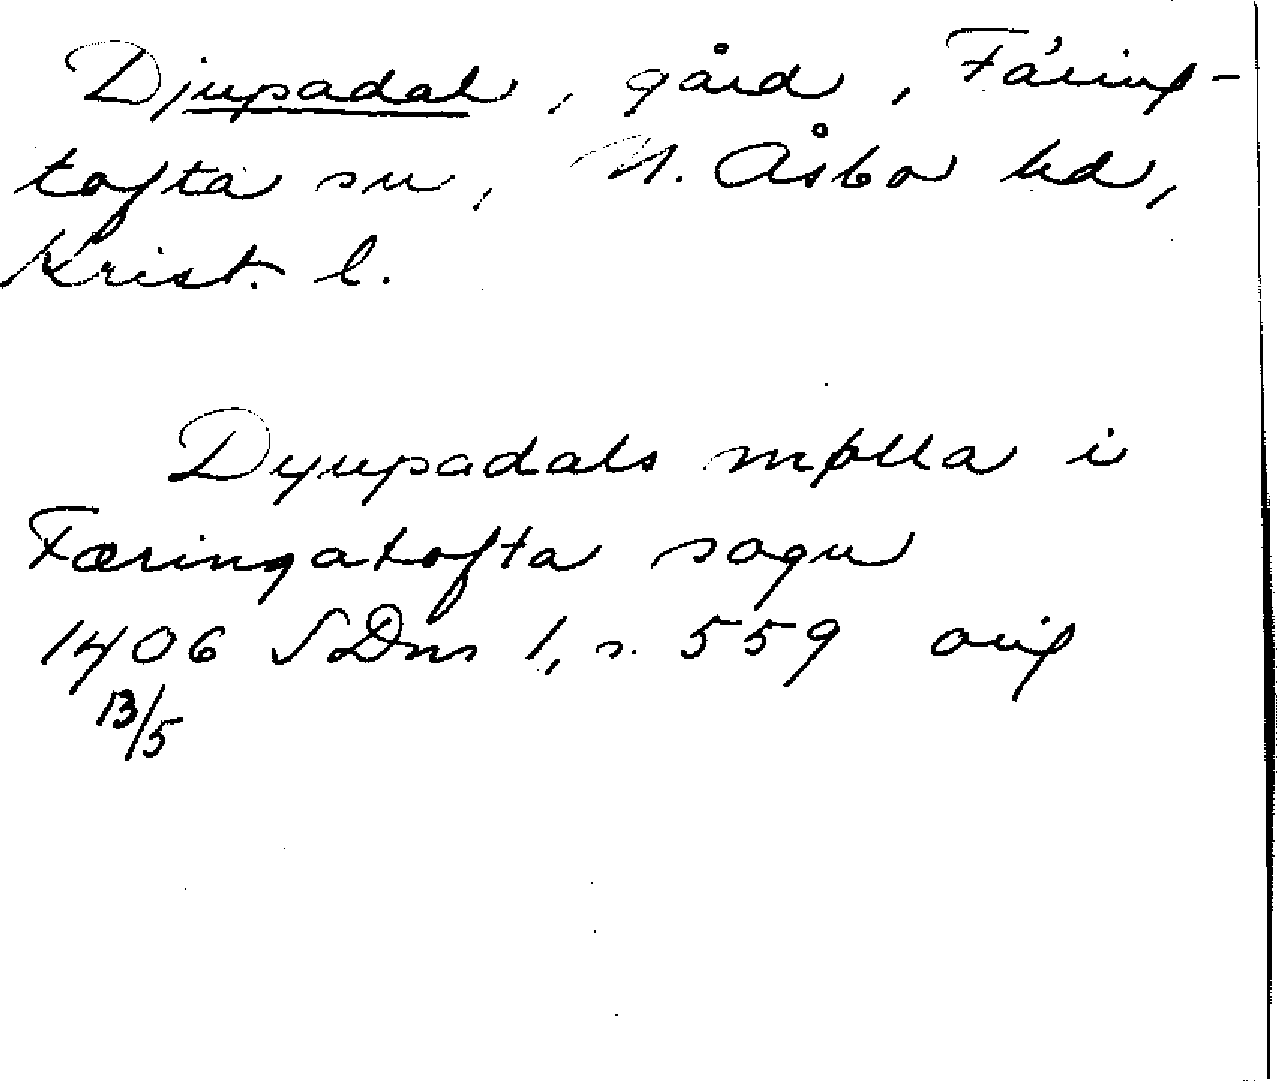 Djupadal, gård, Färing-
tofta sn, N. Åsbo hd,
Krist. l.
Dyupadals mølla i
Færingatofta sogn
1406 SDns 1, s. 559 orig
13/5